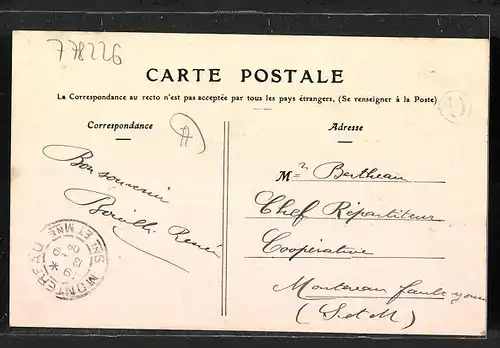 778226
CARTE POSTALE
La Correspondance au recto n'est pas acceptée par tous les pays étrangers. (Se renseigner à la Poste)
Correspondance
Adresse
Bon souvenir
René
Mr Bertheau
Chef Répartiteur
Coopérative
Montereau fault yonne
(S. et M)
MONTEREAU
SNE ET MNE